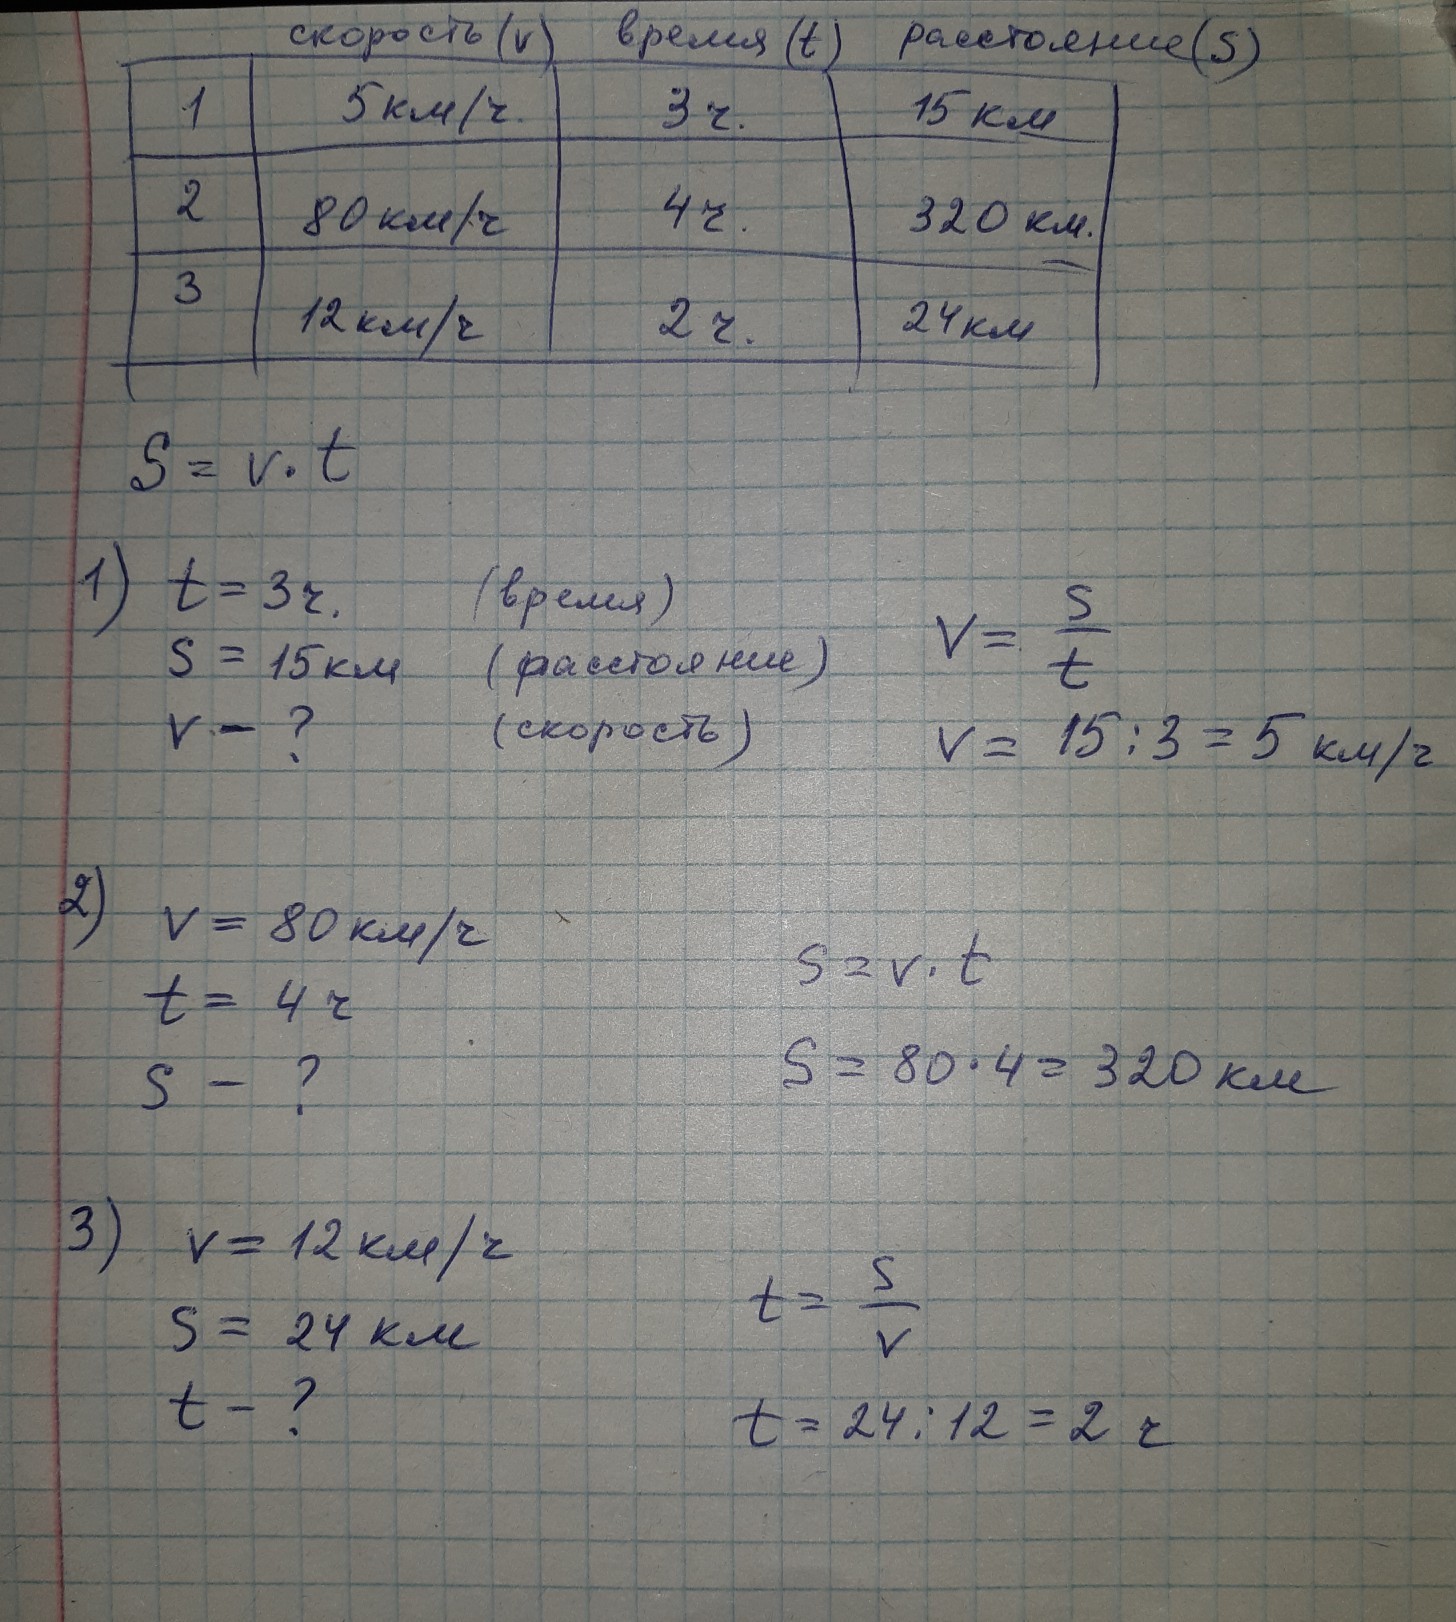 скорость (v) время (t) расстояние (S)
1 5 км/ч. 3 ч. 15 км
2 80 км/ч 4 ч. 320 км.
3 12 км/ч 2 ч. 24 км
S = v · t
1) t = 3 ч. (время)
S = 15 км (расстояние)
v - ? (скорость)
V = S/t
V = 15 : 3 = 5 км/ч
2) v = 80 км/ч
t = 4 ч
S - ?
S = v · t
S = 80 · 4 = 320 км
3) v = 12 км/ч
S = 24 км
t - ?
t = S/v
t = 24 : 12 = 2 ч